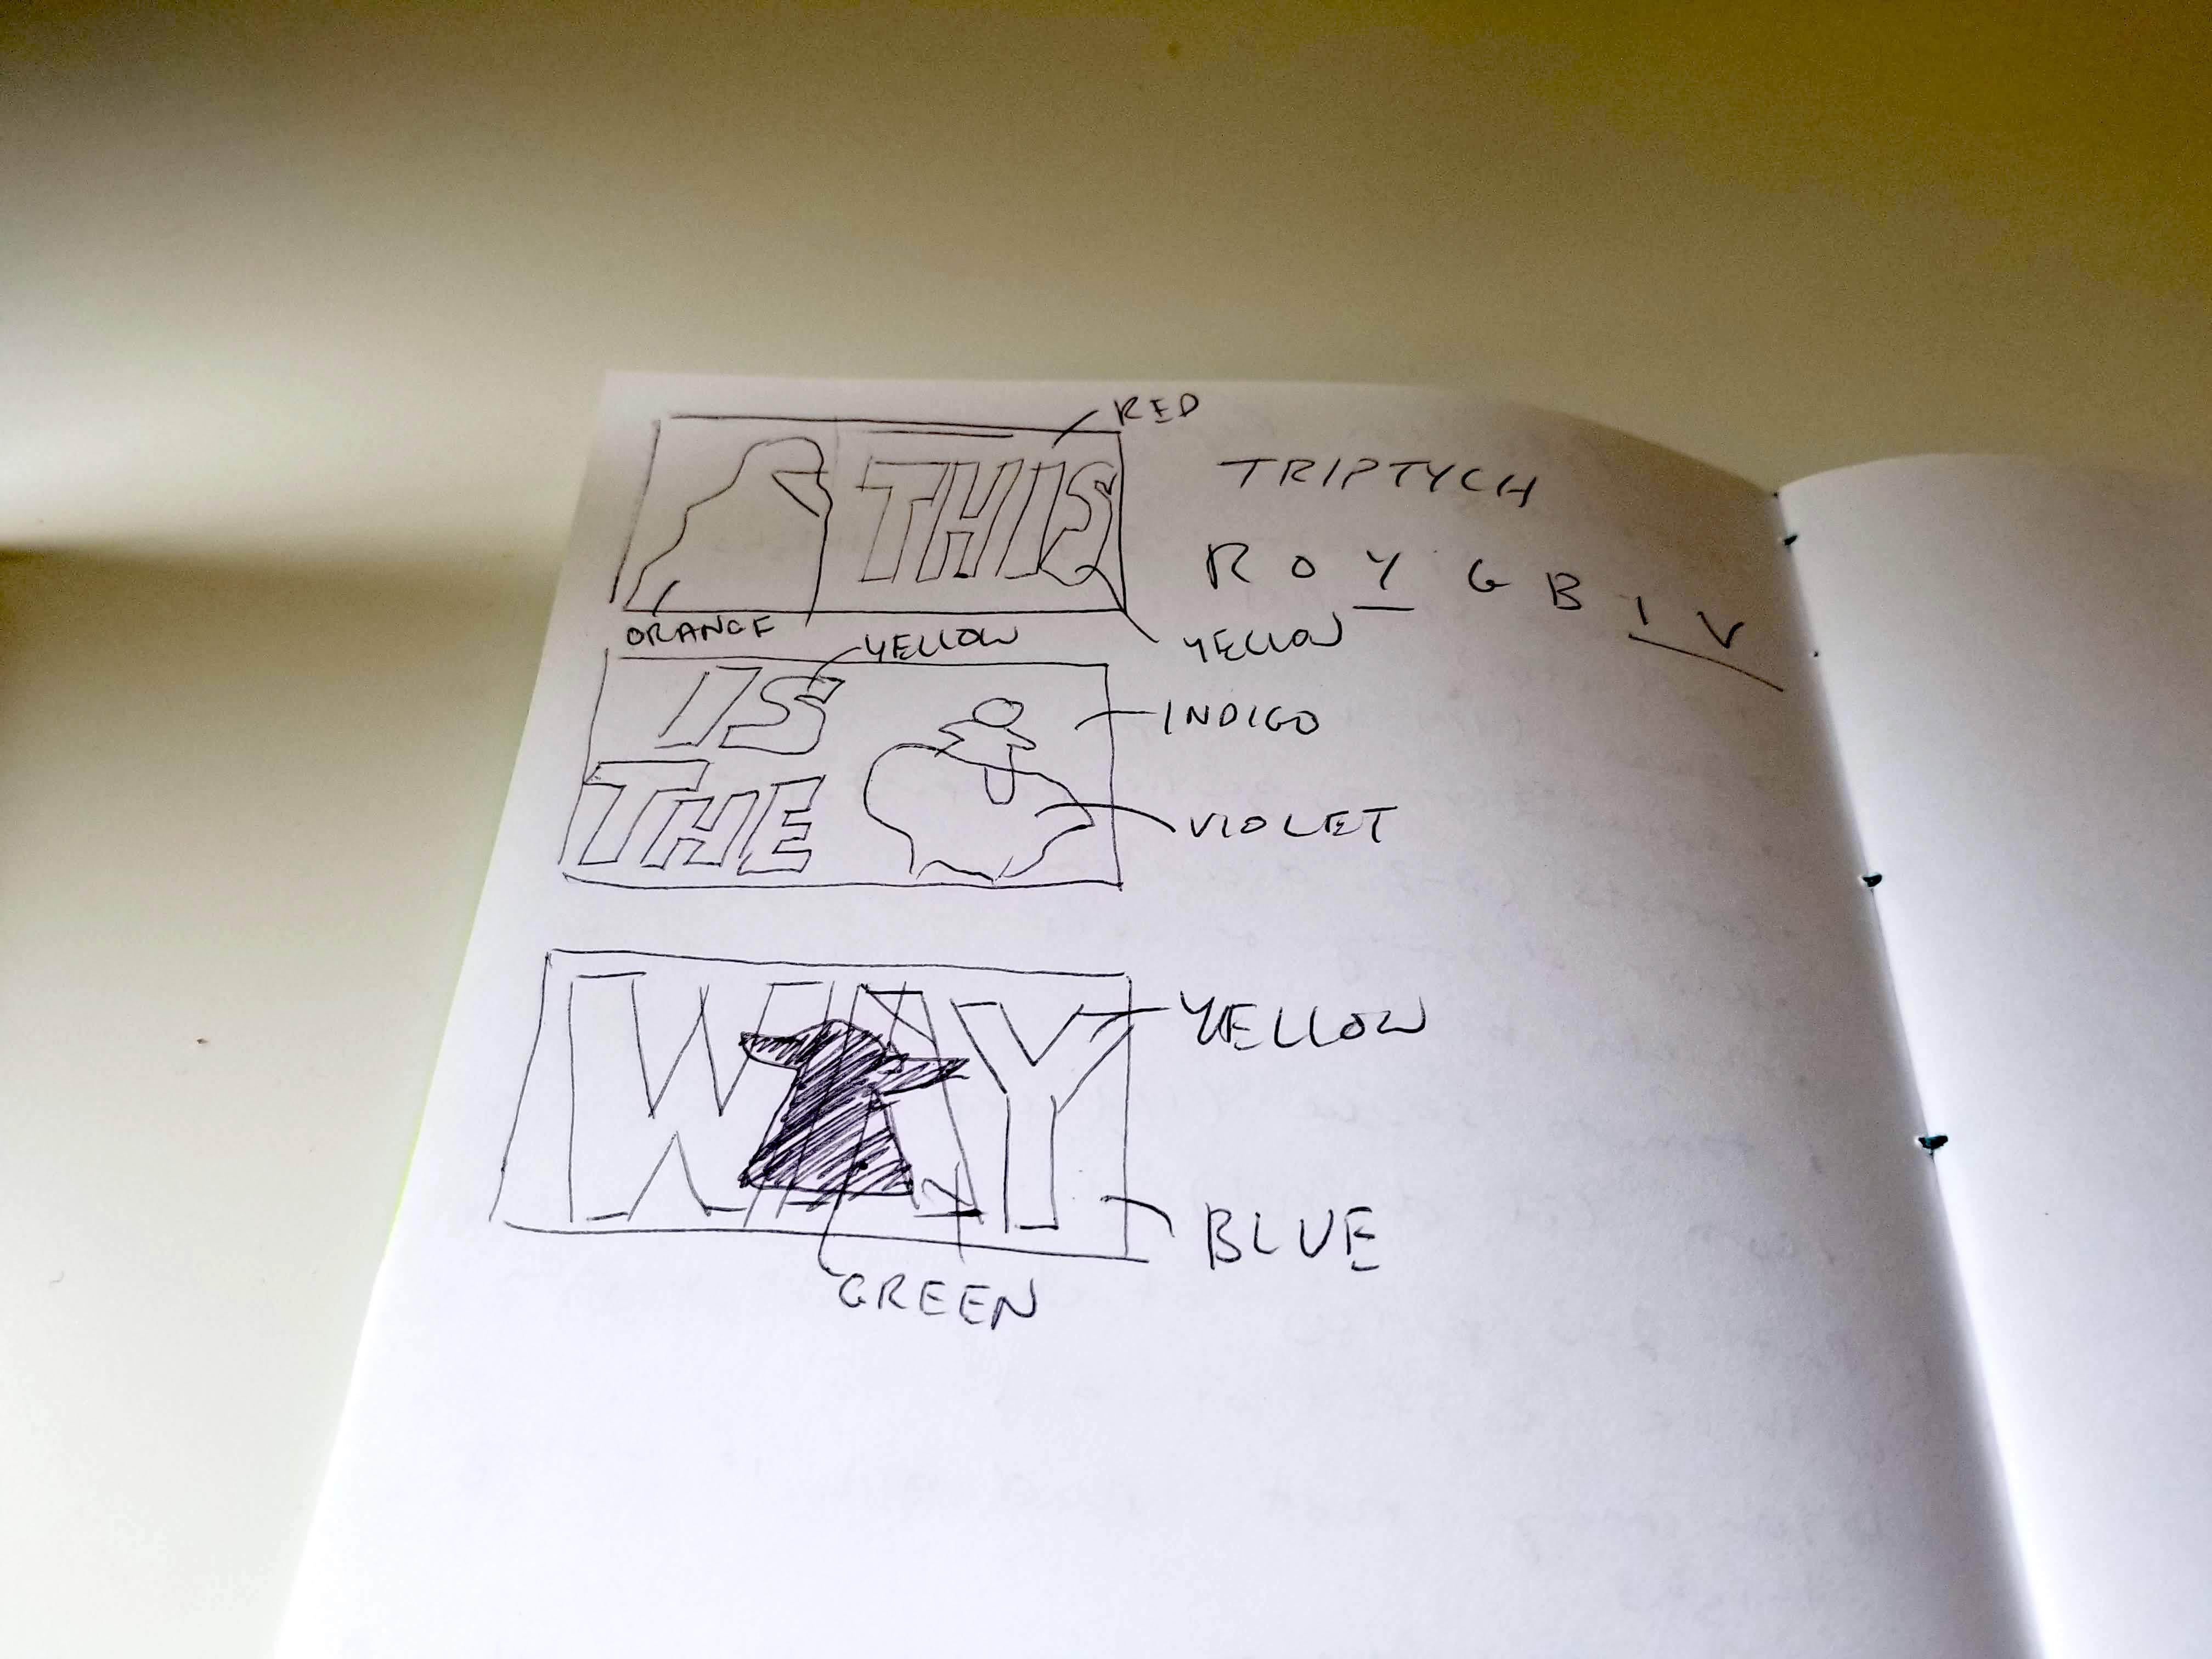 RED
THIS
TRIPTYCH
R O Y G B I V
ORANGE
YELLOW
YELLOW
IS
THE
INDIGO
VIOLET
WAY
YELLOW
BLUE
GREEN